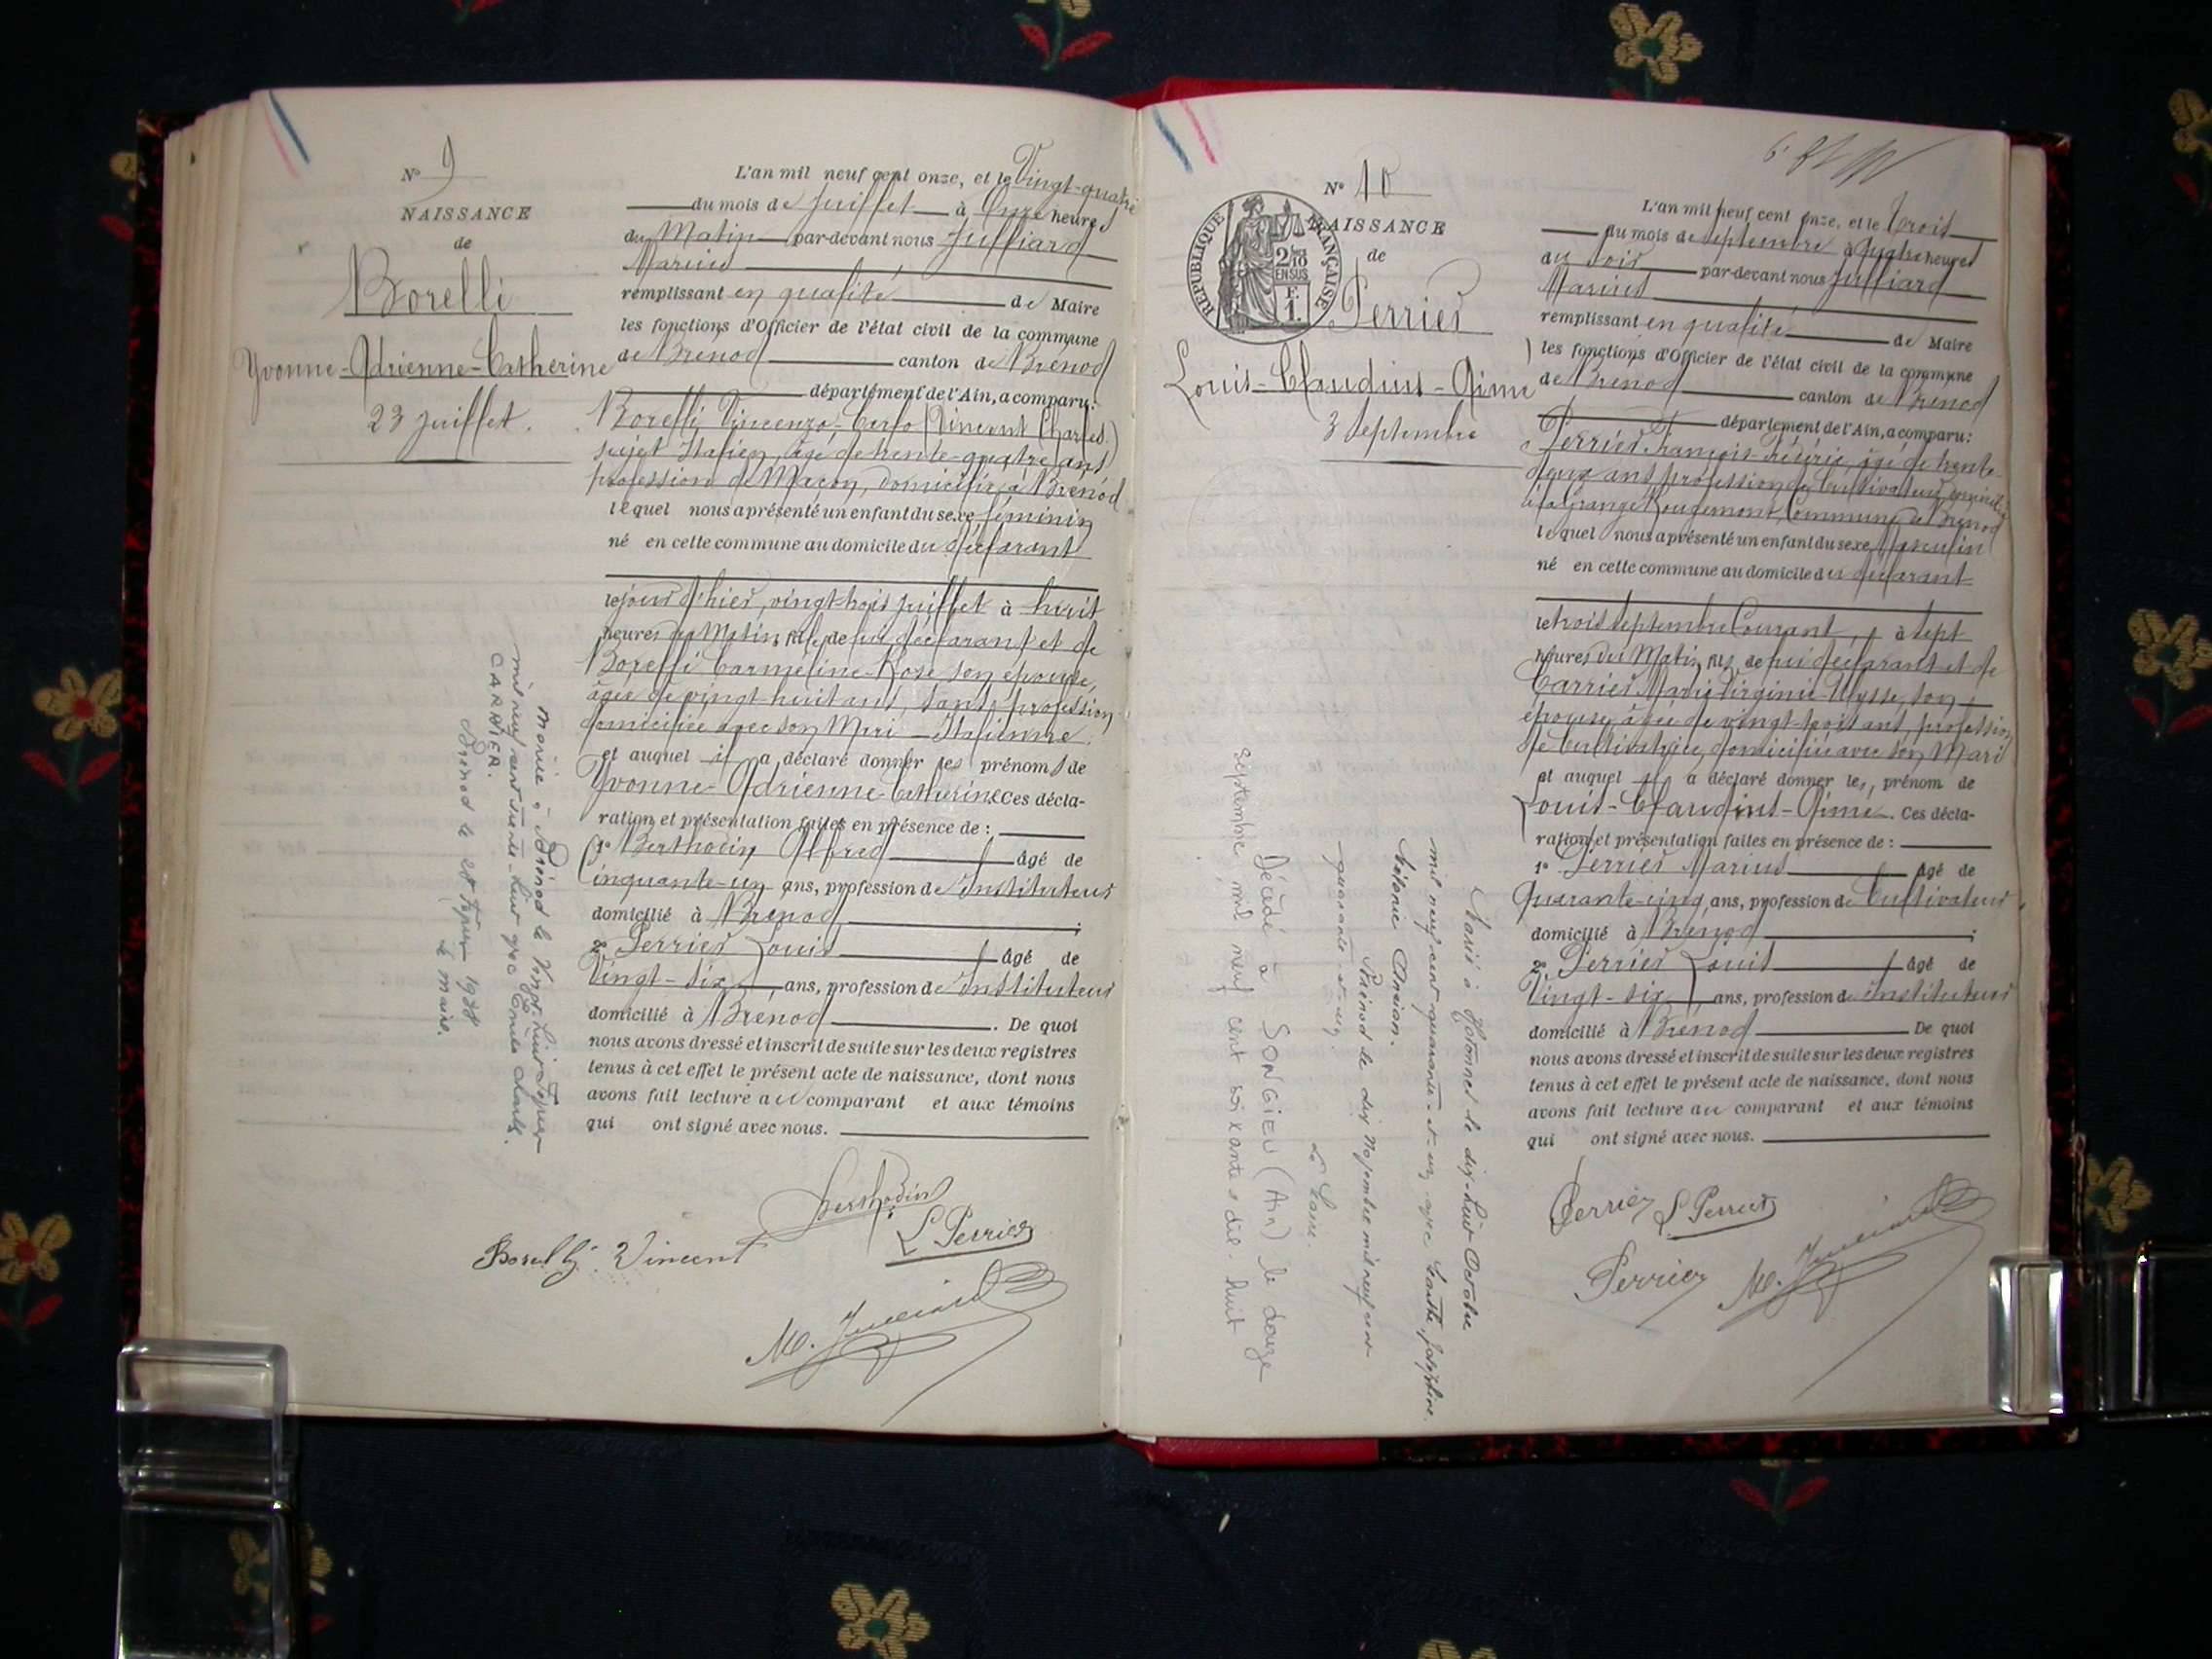 N° 9
NAISSANCE
de
Borelli
Yvonne-Adrienne-Catherine
23 Juillet.
L'an mil neuf cent onze, et le Vingt-quatre
du mois de Juillet à Onze heures
du Matin par-devant nous Julliard
Marius
remplissant en qualité de Maire
les fonctions d'Officier de l'état civil de la commune
de Brénod canton de Brénod
département de l'Ain, a comparu:
Borelli Vincenzo-Carlo (Vincent Charles)
sujet Italien, âgé de trente-quatre ans
profession de Maçon, domicilié à Brénod
lequel nous a présenté un enfant du sexe féminin
né en cette commune au domicile du déclarant
le jour d'hier, vingt-trois juillet à huit
heures du Matin, fille de lui déclarant et de
Borelli Carmeline-Rose son épouse,
âgée de vingt-huit ans, sans profession
domiciliée avec son Mari - Italienne.
et auquel il a déclaré donner les prénoms de
Yvonne-Adrienne-Catherine. Ces décla-
ration et présentation faites en présence de :
1° Berthodin Alfred âgé de
Cinquante-un ans, profession de Instituteur
domicilié à Brénod ;
2° Perrier Louis âgé de
Vingt-six ans, profession de Instituteur
domicilié à Brénod . De quoi
nous avons dressé et inscrit de suite sur les deux registres
tenus à cet effet le présent acte de naissance, dont nous
avons fait lecture au comparant et aux témoins
qui ont signé avec nous.
Mariée à Brénod le vingt-huit Février
mil neuf cent trente-huit avec Emile
CARRIER.
Brénod le 28 Février 1938
Le maire.
Berthodin
L Perrier
Borelli Vincent
M. Julliard
N° 10
NAISSANCE
de
REPUBLIQUE FRANÇAISE
2/10
EN SUS
F.
1.
Perrier
Louis-Claudius-Aimé
3 Septembre
L'an mil neuf cent onze, et le Trois
du mois de Septembre à Quatre heures
du Soir par-devant nous Julliard
Marius
remplissant en qualité de Maire
les fonctions d'Officier de l'état civil de la commune
de Brénod canton de Brénod
département de l'Ain, a comparu:
Perrier François-Frédéric, âgé de trente-
deux ans, profession de Cultivateur, domicilié
à la Grange Rougemont, Commune de Brénod
lequel nous a présenté un enfant du sexe Masculin
né en cette commune au domicile du déclarant
le trois Septembre Courant, à Sept
heures du Matin, fils de lui déclarant et de
Carrier Marie-Virginie-Ulysse, son
épouse, âgée de vingt-trois ans, profession
de Cultivatrice, domiciliée avec son Mari
et auquel il a déclaré donner les prénom de
Louis-Claudius-Aimé. Ces décla-
ration et présentation faites en présence de :
1° Perrier Marius âgé de
Quarante-cinq ans, profession de Cultivateur,
domicilié à Brénod ;
2° Perrier Louis âgé de
Vingt-six ans, profession de Instituteur
domicilié à Brénod De quoi
nous avons dressé et inscrit de suite sur les deux registres
tenus à cet effet le présent acte de naissance, dont nous
avons fait lecture au comparant et aux témoins
qui ont signé avec nous.
Marié à Hotonnes le dix-huit Octobre
mil neuf cent quarante-et-un avec Marthe, Joséphine,
Mélanie Ancian.
Brénod le dix Novembre mil neuf cent
quarante-et-un.
Le Maire.
Décédé à SONGIEU (Ain) le douze
septembre mil neuf cent soixante-dix-huit
Perrier L Perrier
Perrier M. Julliard